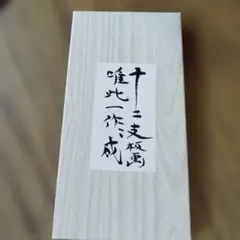 十二支板画
唯此一作成